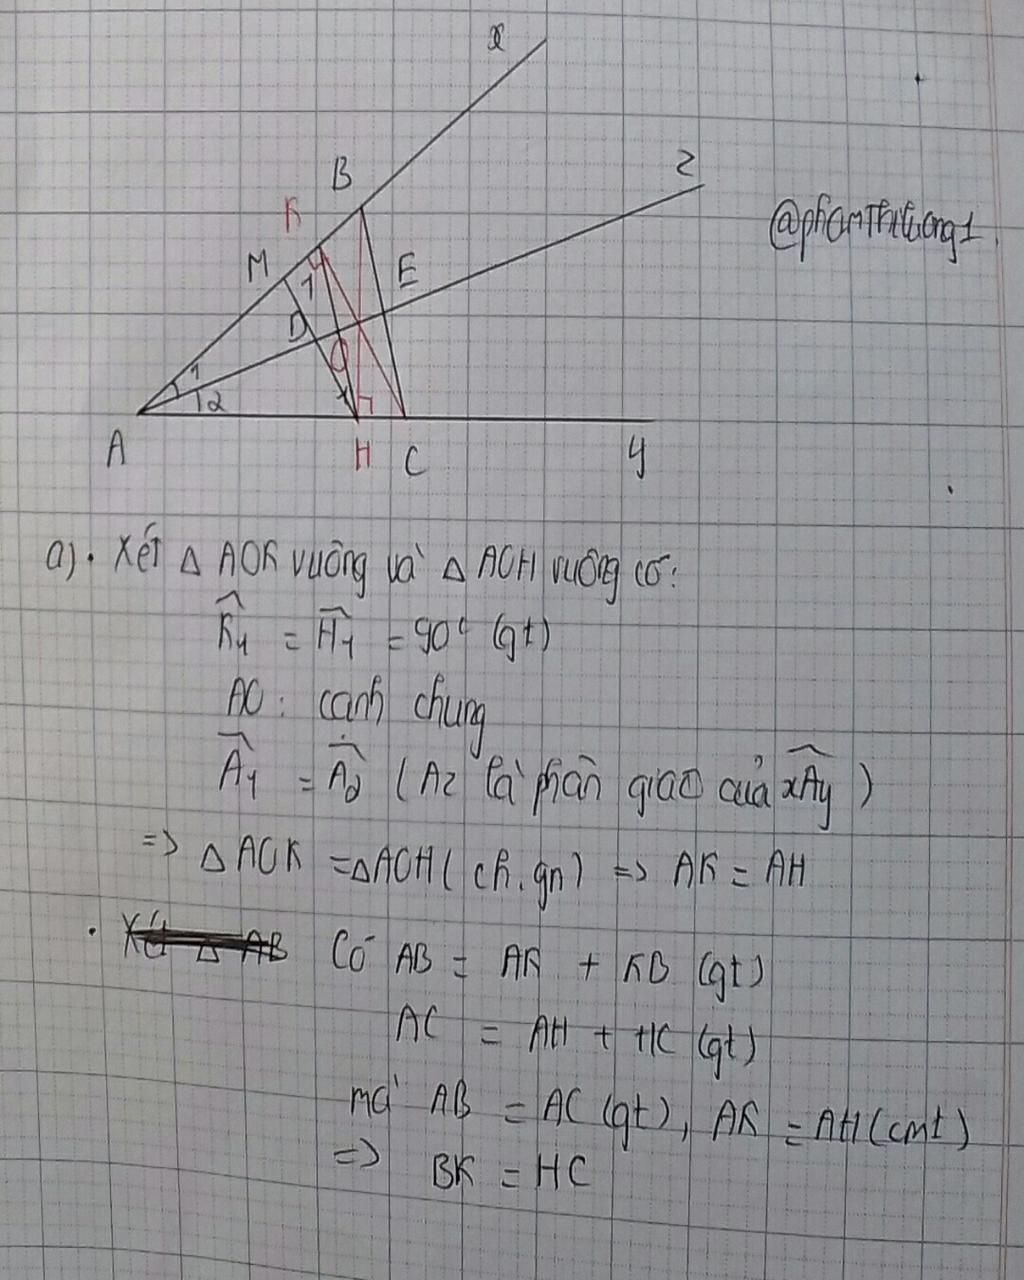 x
B
z
K
M
E
@phamThiLuong1
1
D
O
1
2
A
H
C
y
a). Xét Δ AOK vuông và Δ AOH vuông có:
K̂1 = Ĥ1 = 90° (gt)
AO: cạnh chung
Â1 = Â2 (Az là phân giác của x̂Ay)
=> Δ AOK = Δ AOH (ch.gn) => AK = AH
. Có AB = AK + KB (gt)
AC = AH + HC (gt)
mà AB = AC (gt), AK = AH (cmt)
=> BK = HC